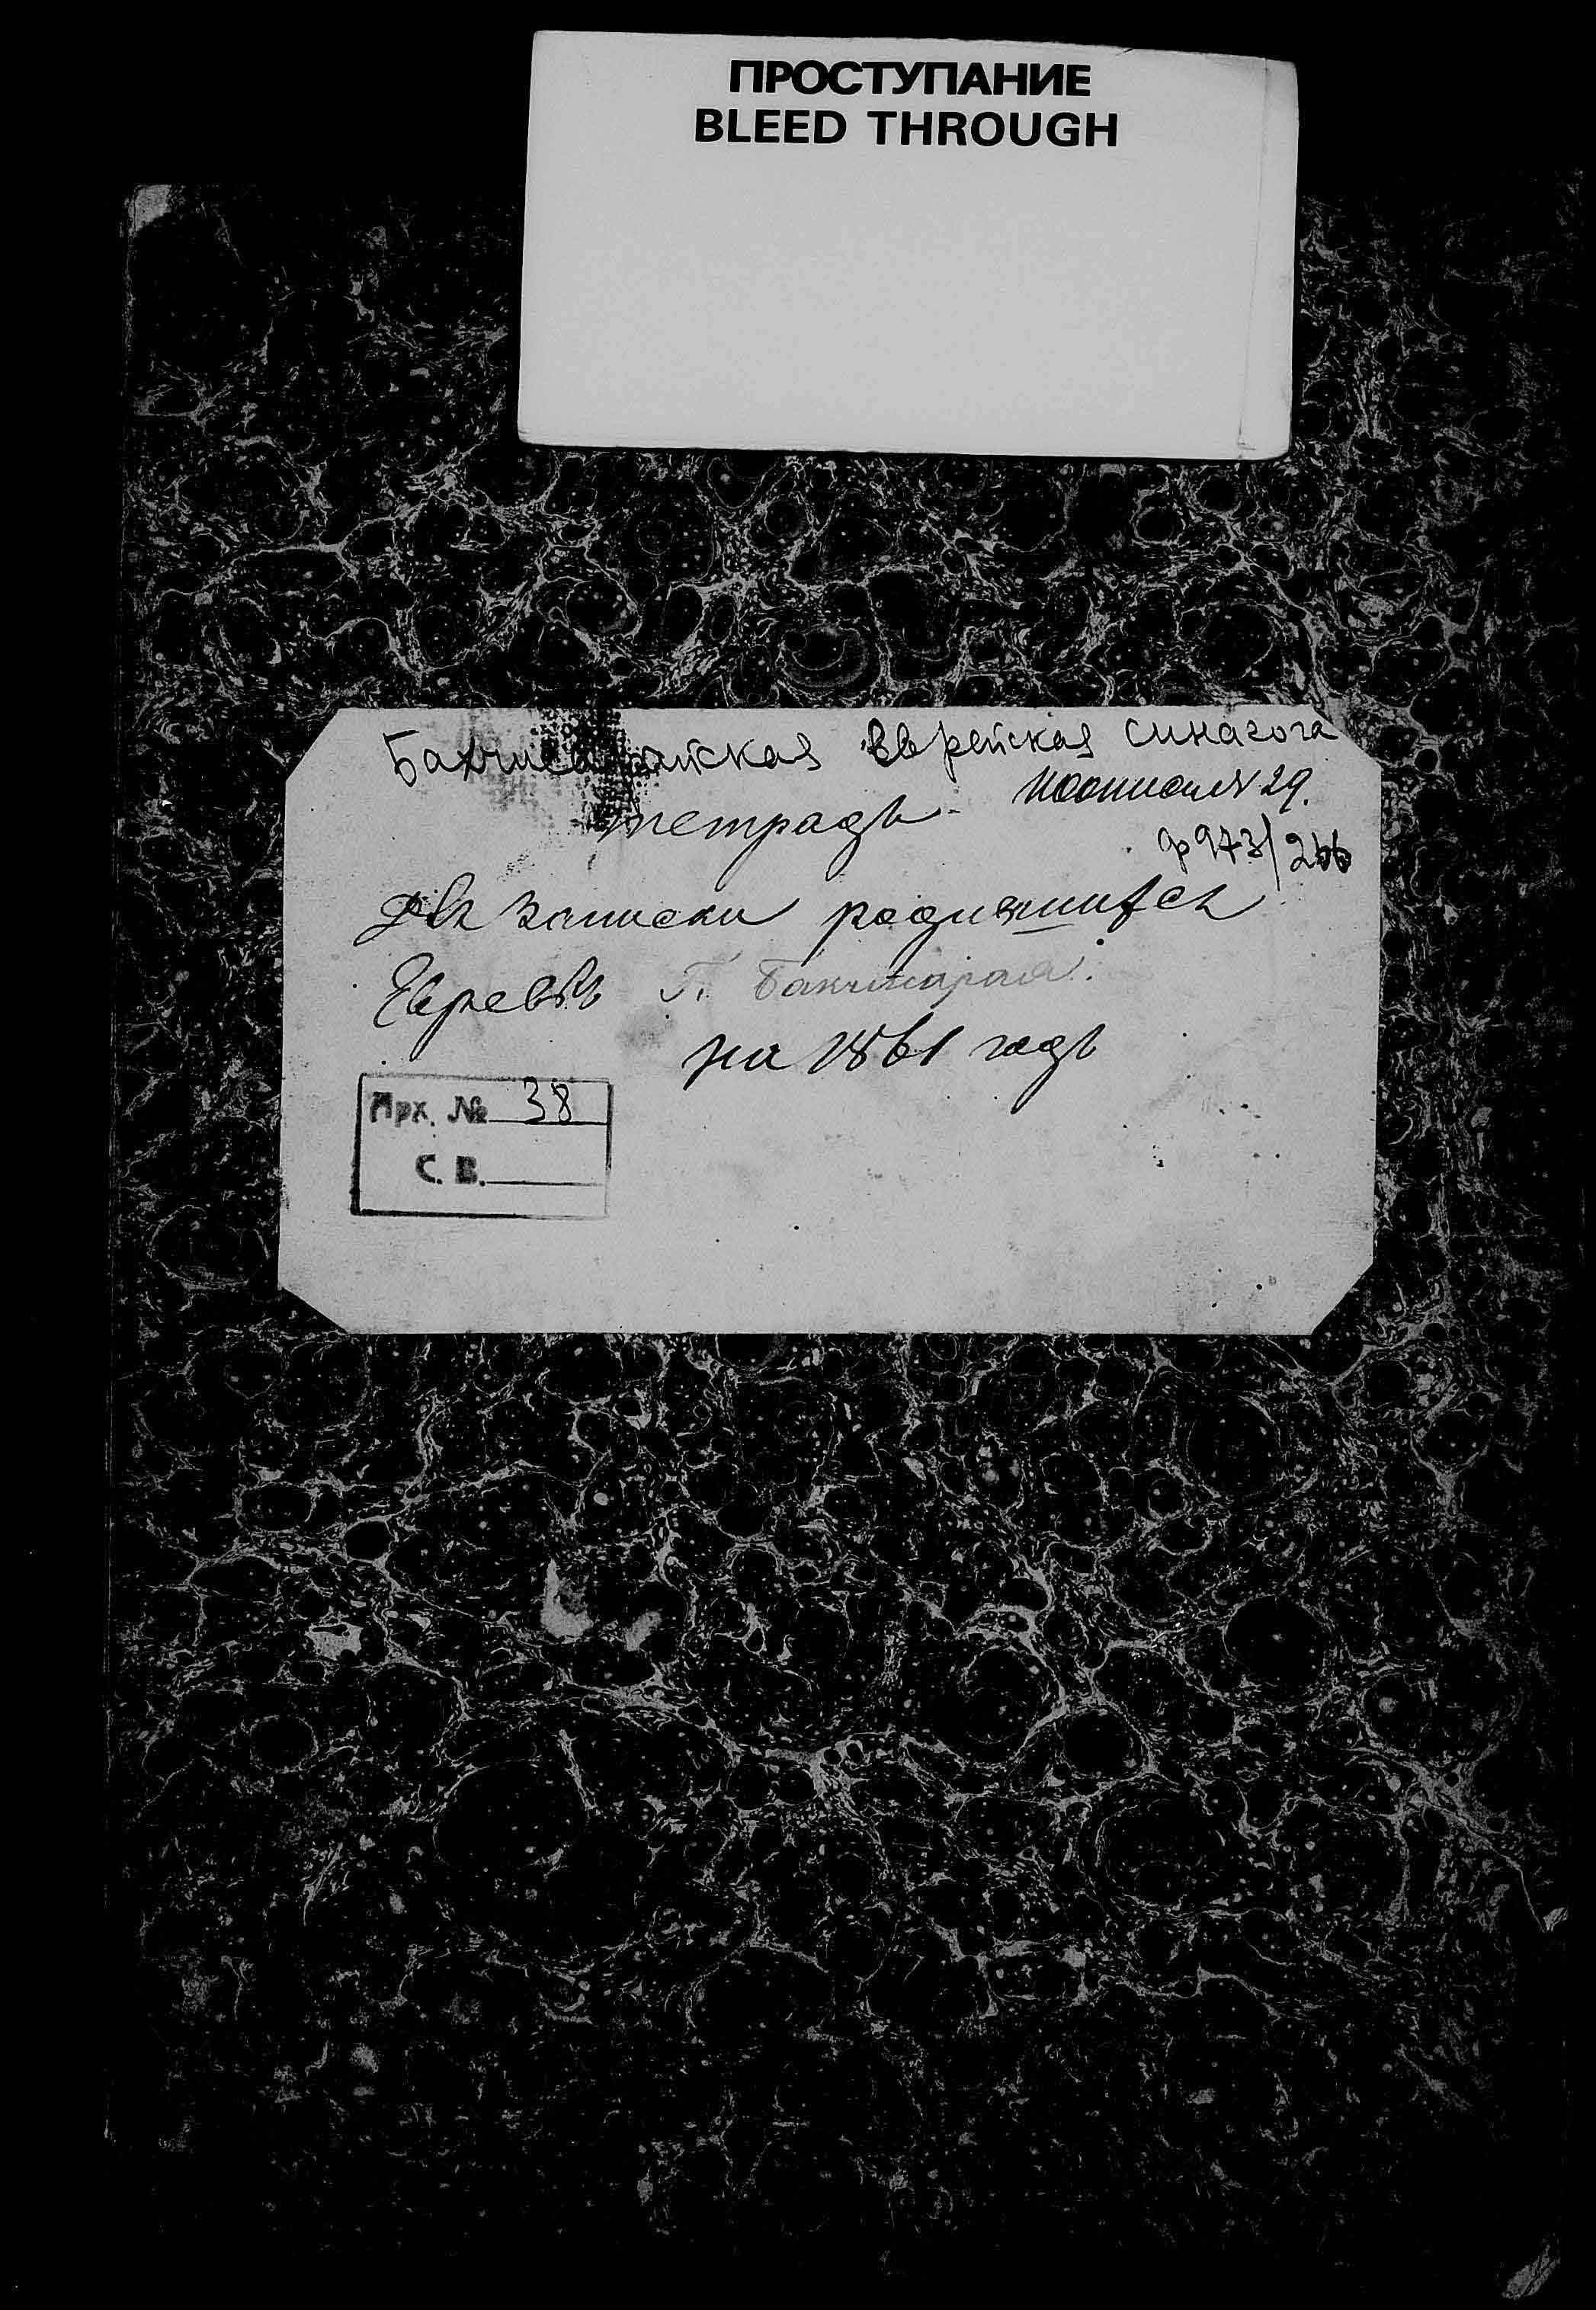 ПРОСТУПАНИЕ
BLEED THROUGH
Бахчисарайская Еврейская синагога
тетрадь
по описи № 29.
ф 973/266
для записки родившихся
Евреевъ Г. Бахчисарая.
на 1861 годъ
Арх. № 38
С. В.